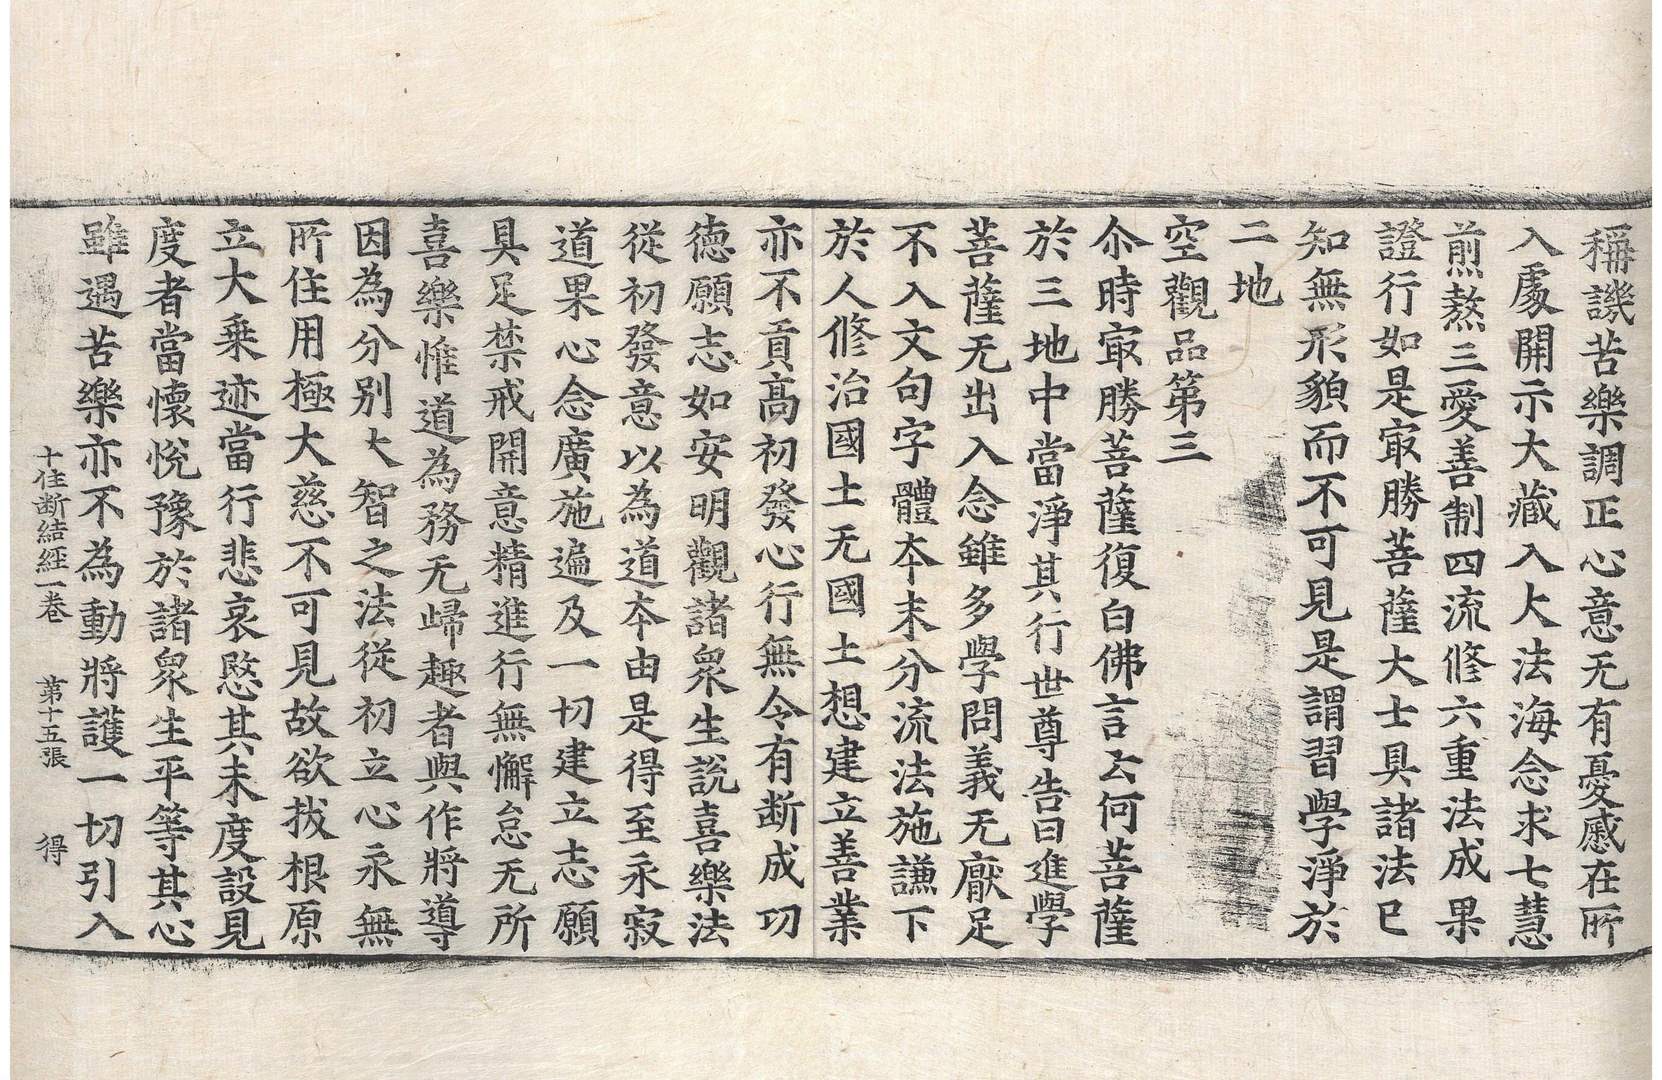 稱譏苦樂調正心意无有憂慼在所
入處開示大藏入大法海念求七慧
煎熬三愛善制四流修六重法成果
證行如是㝡勝菩薩大士具諸法已
知無形貌而不可見是謂習學淨於
二地
空觀品第三
尒時㝡勝菩薩復白佛言云何菩薩
於三地中當淨其行世尊告曰進學
菩薩无出入念雖多學問義无厭足
不入文句字體本末分流法施謙下
於人修治國土无國土想建立善業
亦不貢高初發心行無令有断成切
德願志如安明觀諸衆生說喜樂法
從初發意以為道本由是得至永寂
道果心念廣施遍及一切建立志願
具足禁戒開意精進行無懈怠无所
喜樂惟道為務无歸趣者與作將導
因為分别大智之法從初立心永無
所住用極大慈不可見故欲拔根原
立大乗迹當行悲哀愍其未度設見
度者當懷悅豫於諸衆生平等其心
雖遇苦樂亦不為動將護一切引入
十住断結經一卷 第十五張 得